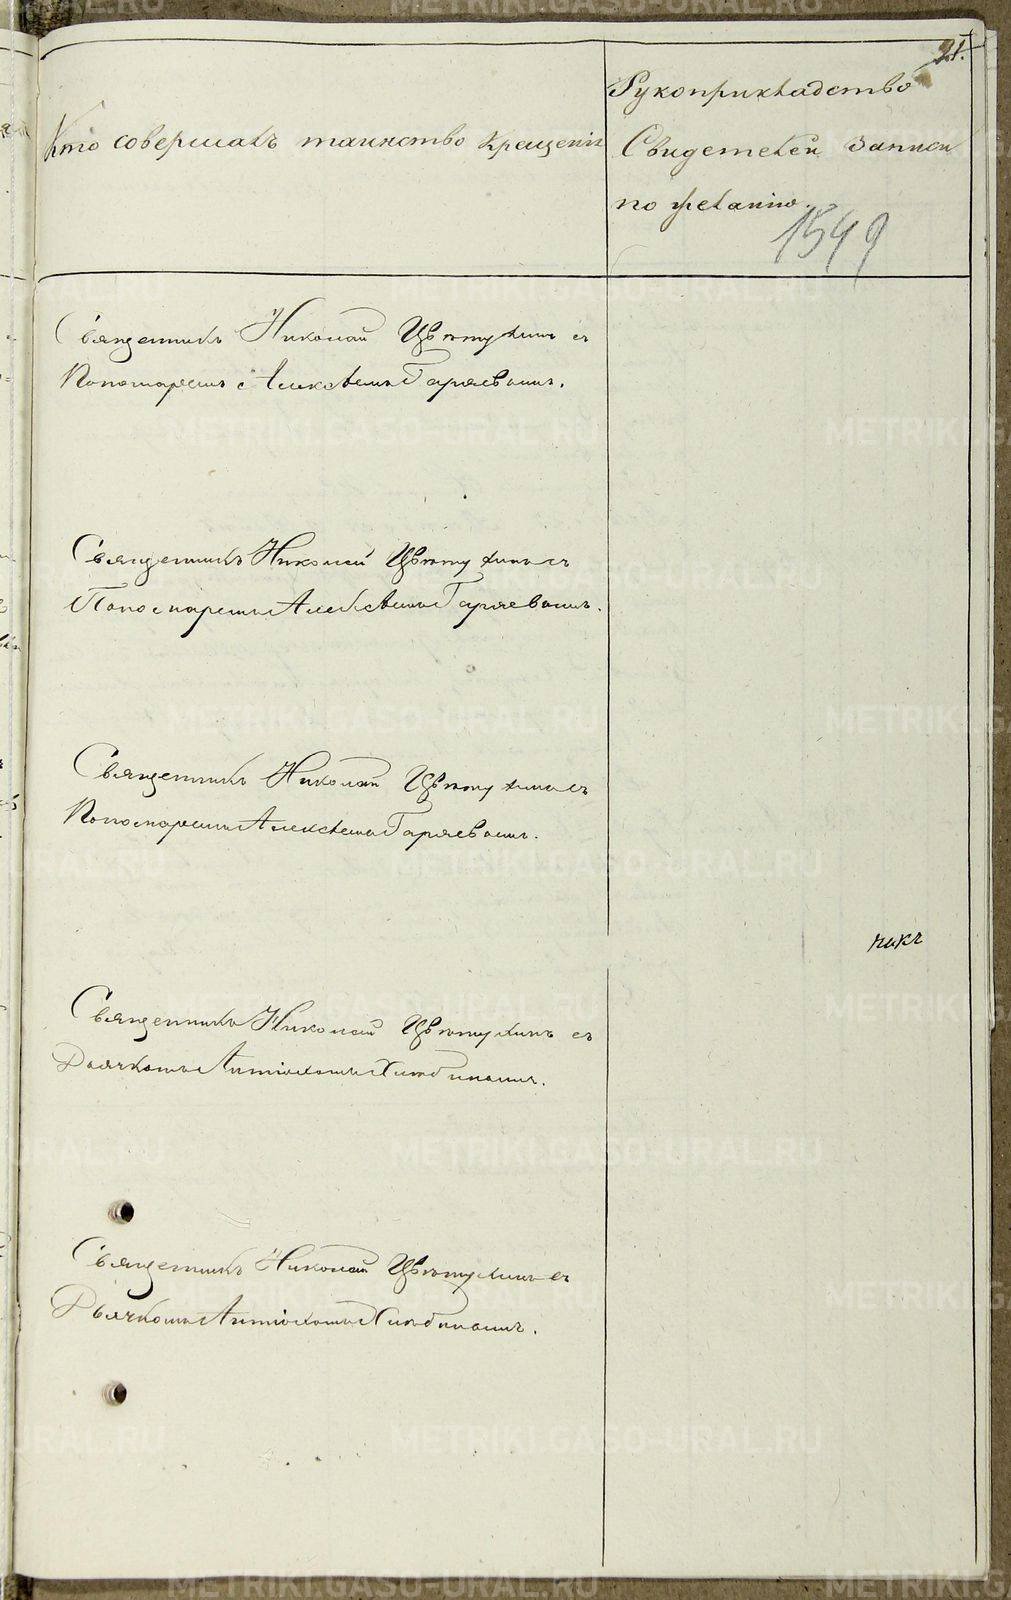 21.
Кто совершалъ таинство крещенія
Рукоприкладство
Свидетелей записи
по желанію.
1549
Священникъ Николай Цвѣтухинъ съ
Пономаремъ Алексѣемъ Гаряевымъ.
Священникъ Николай Цвѣтухинъ съ
Пономаремъ Алексѣемъ Гаряевымъ.
Священникъ Николай Цвѣтухинъ съ
Пономаремъ Алексѣемъ Гаряевымъ.
Священникъ Николай Цвѣтухинъ съ
Дьячкомъ Антіохомъ
Священникъ Николай Цвѣтухинъ съ
Дьячкомъ Антіохомъ
METRIKI.GASO-URAL.RU